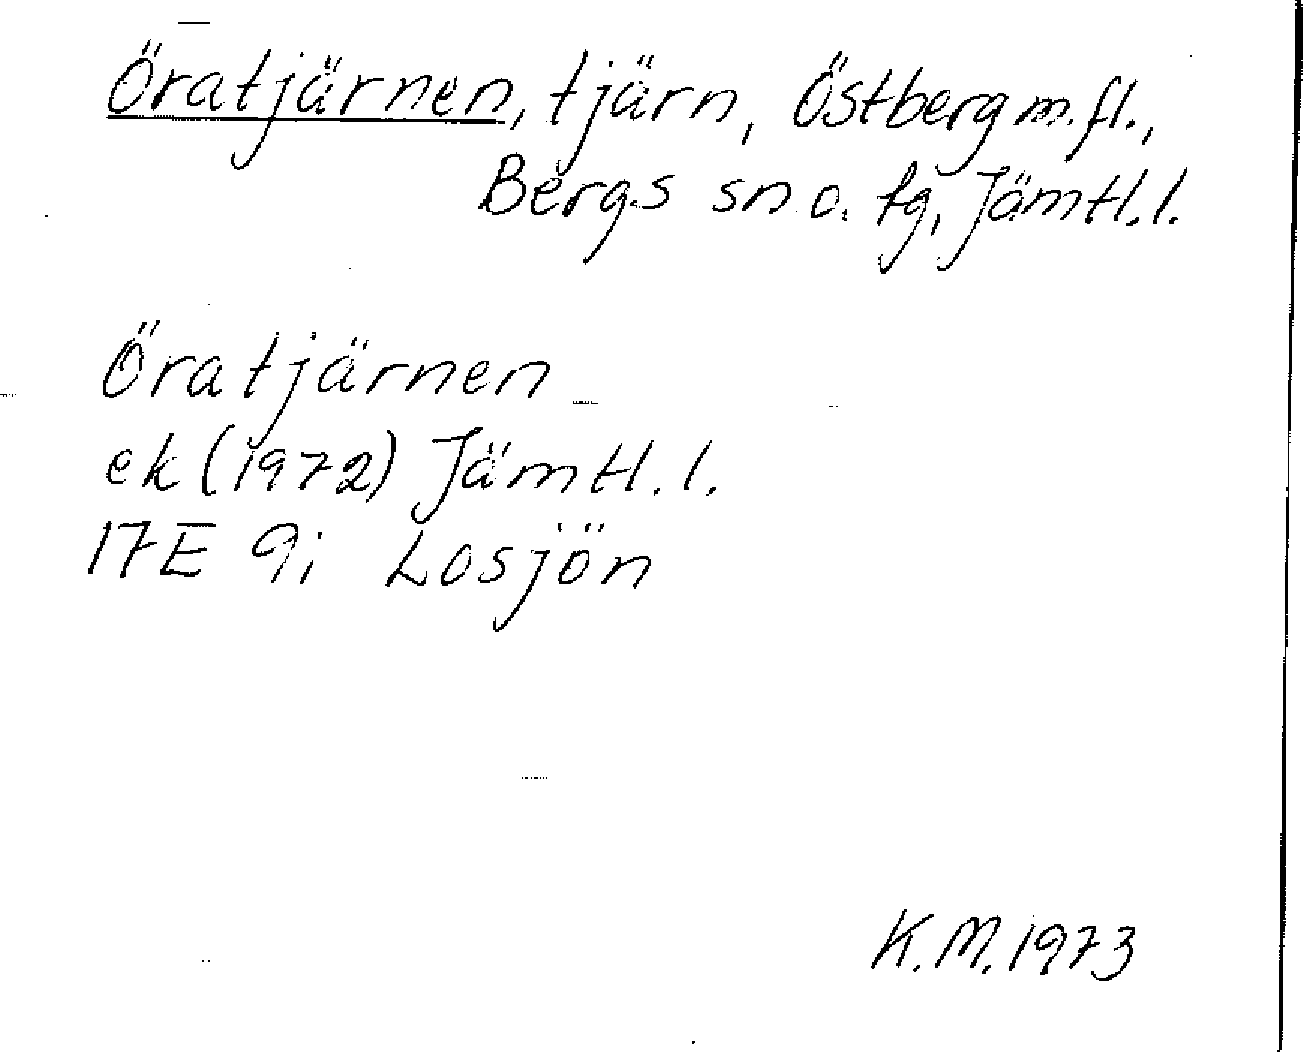 Öratjärnen, tjärn, Östberg m.fl.,
Bergs sn o. tg, Jämtl.l.
Öratjärnen
ek (1972) Jämtl.l.
17E 9i Losjön
K.M. 1973